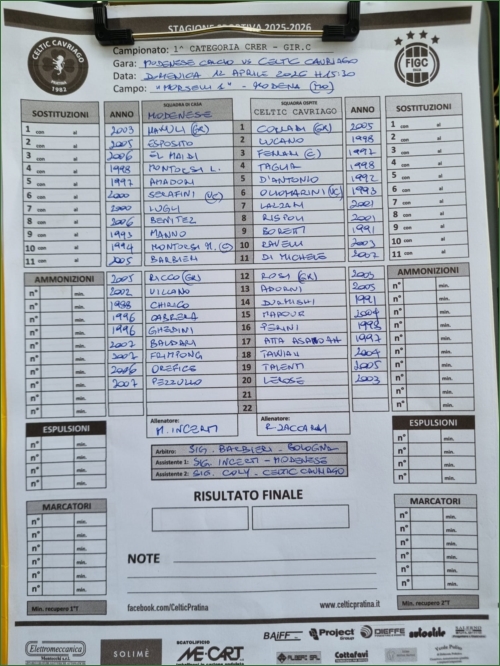 STAGIONE SPORTIVA 2025-2026
CELTIC CAVRIAGO
1982
FIGC
Campionato: 1^ CATEGORIA CRER - GIR.C
Gara: MODENESE CALCIO VS CELTIC CAVRIAGO
Data: DOMENICA 12 APRILE 2026 H.15:30
Campo: "MORSELLI 1" - MODENA (MO)
SOSTITUZIONI ANNO SQUADRA DI CASA SQUADRA OSPITE ANNO SOSTITUZIONI
MODENESE CELTIC CAVRIAGO
1 con al 2003 (GR) 1 CORRADI (GR) 2005 1 con al
2 con al 2005 ESPOSITO 2 LUCANO 1998 2 con al
3 con al 2006 EL MAIDI 3 FERRARI (C) 1997 3 con al
4 con al 1998 MONTORSI L. 4 TAGLIA 1998 4 con al
5 con al 1997 AMADORI 5 D'ANTONIO 1992 5 con al
6 con al 2000 SERAFINI (VC) 6 OLIOMARINI (VC) 1993 6 con al
7 con al 2000 LUGLI 7 LALZAM 2001 7 con al
8 con al 2006 BENITEZ 8 RISPOLI 2001 8 con al
9 con al 1993 MANNO 9 BORETTI 1991 9 con al
10 con al 1994 MONTORSI M. (C) 10 RAVELLI 2003 10 con al
11 con al 2005 BARBIERI 11 DI MICHELE 2002 11 con al
AMMONIZIONI 2005 RICCO (GR) 12 ROSSI (GR) 2005 AMMONIZIONI
n° min. 2002 VILLANO 13 ADORNI 2005 n° min.
n° min. 1998 CHIRICO 14 DURMISHI 1991 n° min.
n° min. 1996 CABRERA 15 2004 n° min.
n° min. 1996 GHEDINI 16 PERINI 1998 n° min.
n° min. 2007 BALDARI 17 ATTA ASAMOAH 1997 n° min.
n° min. 2007 FRIMPONG 18 TAWIAH 2004 n° min.
n° min. 2006 OREFICE 19 TALENTI 2005 n° min.
n° min. 2007 PEZZULLO 20 LEROSE 2003 n° min.
n° min. 21 n° min.
n° min. 22 n° min.
ESPULSIONI Allenatore: Allenatore: ESPULSIONI
M. INCERTI R. ZACCARDI
n° min. Arbitro: SIG. BARBIERI - BOLOGNA n° min.
n° min. Assistente 1: SIG. INCERTI - MODENESE n° min.
n° min. Assistente 2: SIG. COLY - CELTIC CAVRIAGO n° min.
n° min. n° min.
RISULTATO FINALE
MARCATORI MARCATORI
n° min. n° min.
n° min. n° min.
n° min. n° min.
n° min. NOTE n° min.
n° min. n° min.
Min. recupero 1°T facebook.com/CelticPratina www.celticpratina.it Min. recupero 2°T
Elettromeccanica
SOLIMÈ
BEATOLIFICIO
ME-CART
BAIFF
Project
DIEFFE
Cottafavi